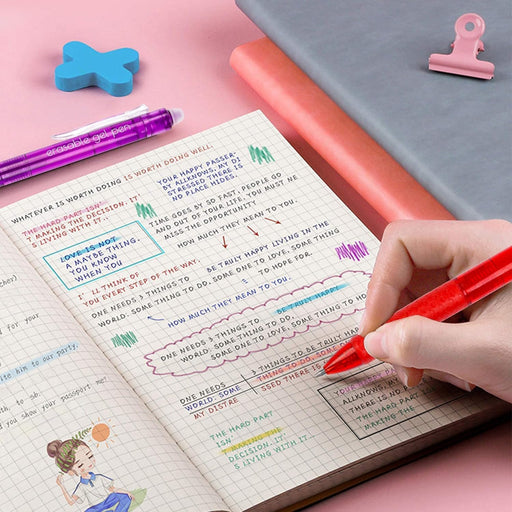 erasable gel pen
WHATEVER IS WORTH DOING IS WORTH DOING WELL.
THE HARD PART ISN'
T MAKING THE DECISION. IT'
S LIVING WITH IT...
YOUR HAPPY PASSER-
BY ALLKNOWS, MY DI
STRESSED THERE IS
NO PLACE HIDES.
LOVE IS NOT
A MAYBE THING.
YOU KNOW
WHEN YOU
TIME GOES BY SO FAST, PEOPLE GO
AND OUT OF YOUR LIFE. YOU MUST NE
MISS THE OPPORTUNITY
HOW MUCH THEY MEAN TO YOU.
I' LL THINK OF
YOU EVERY STEP OF THE WAY.
BE TRULY HAPPY LIVING IN THE
ONE NEEDS 3 THINGS TO
WORLD: SOME THING TO DO, SOME ONE TO LOVE, SOME THING
TO HOPE FOR.
HOW MUCH THEY MEAN TO YOU.
BE TRULY HAPPY
ONE NEEDS 3 THINGS TO
WORLD: SOME THING TO DO, SOME ONE TO LOVE, SOME THING TO HO
ONE NEEDS 3 THINGS TO BE TRULY HAP
WORLD: SOME THING TO DO, SOME
MY DISTRE SSED THERE IS NO
YOUR HAPPY PAS
ALLKNOWS, MY
THERE IS NO
THE HARD PART
MAKING THE
THE HARD PART
ISN'
T MAKING THE
DECISION. IT'
S LIVING WITH IT...
for your
to our party.
with, to sb.
d you show your passport me?